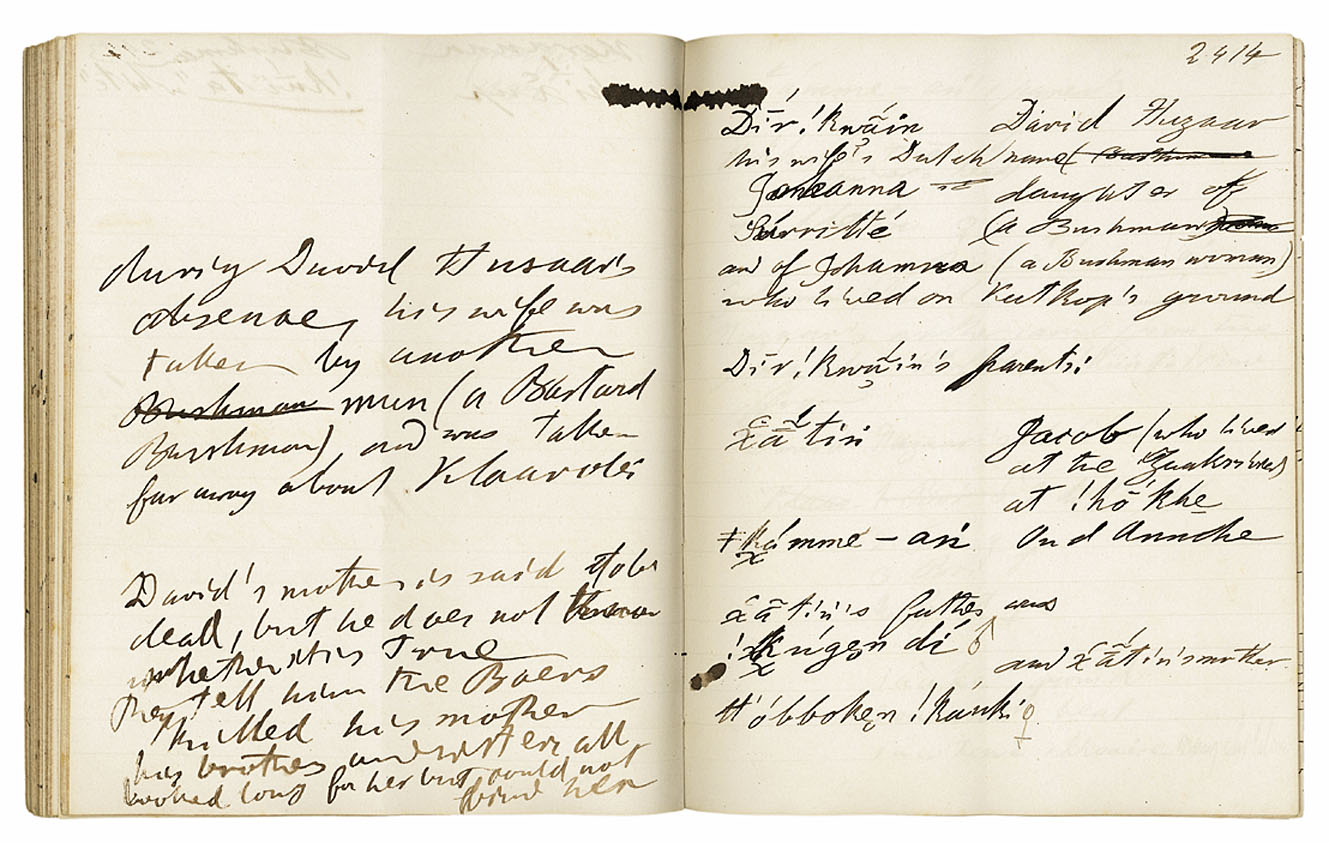 during David Husaar's
absence, his wife was
taken by another
Bushman man (a Bastard
Bushman) and was taken
far away about
David's mother is said to be
dead, but he does not know
whether it is true
They tell him the Boers
killed his mother
his brother and sister all
looked long for her but could not
find her
2414
Dĭă!kwāin David Huzaar
his wife's Dutch name (
Johanna = daughter of
(a Bushman)
and of Johanna (a Bushman woman)
who lived on Kutkop's ground
Dĭă!kwāin's parents:
χāā tiń Jacob (who lived
at the Zaakriver)
at !hō khe
≠kámme-aṅ Oud Annche
χāā tiń's father was
!χúgen dí ♂
and χāā tiń's mother
ttóbboken !káuki ♀